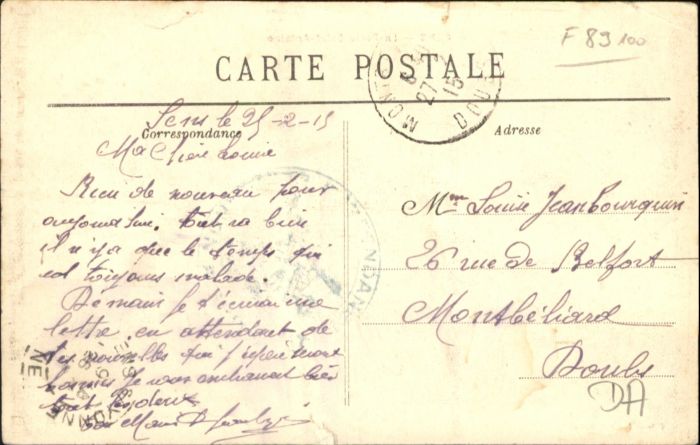 F 89 100
CARTE POSTALE
27
15
DOUBS
Sens le 25-2-15
Correspondance
Adresse
Ma Chère Louise
Rien de nouveau pour
aujourd'hui. tout va bien
il n'y a que le temps qui
est toujours malade.
Demain je t'écrirai une
lettre en attendant de
tes nouvelles que j'espère
bonnes je vous
tous
ton Mari
Mme Louise Jeanbourquin
26 rue de Belfort
Montbéliard
Doubs
YONNE
DA